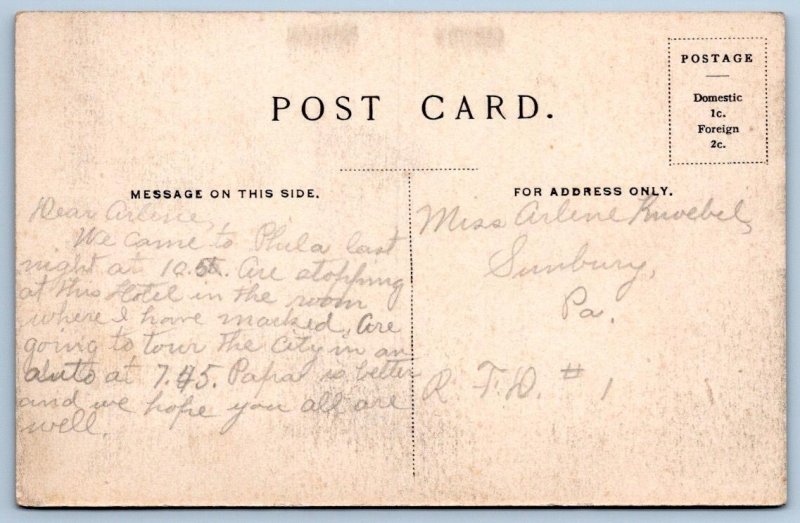 POST CARD.
POSTAGE
Domestic
1c.
Foreign
2c.
MESSAGE ON THIS SIDE.
Dear Arlene,
We came to Phila last
night at 10.5. Are stopping
at this Hotel in the room
where I have marked, Are
going to tour the City in an
auto at 7.45. Papa is better
and we hope you all are
well.
FOR ADDRESS ONLY.
Miss Arlene Knoebel,
Sunbury,
Pa.
R. F. D. # 1